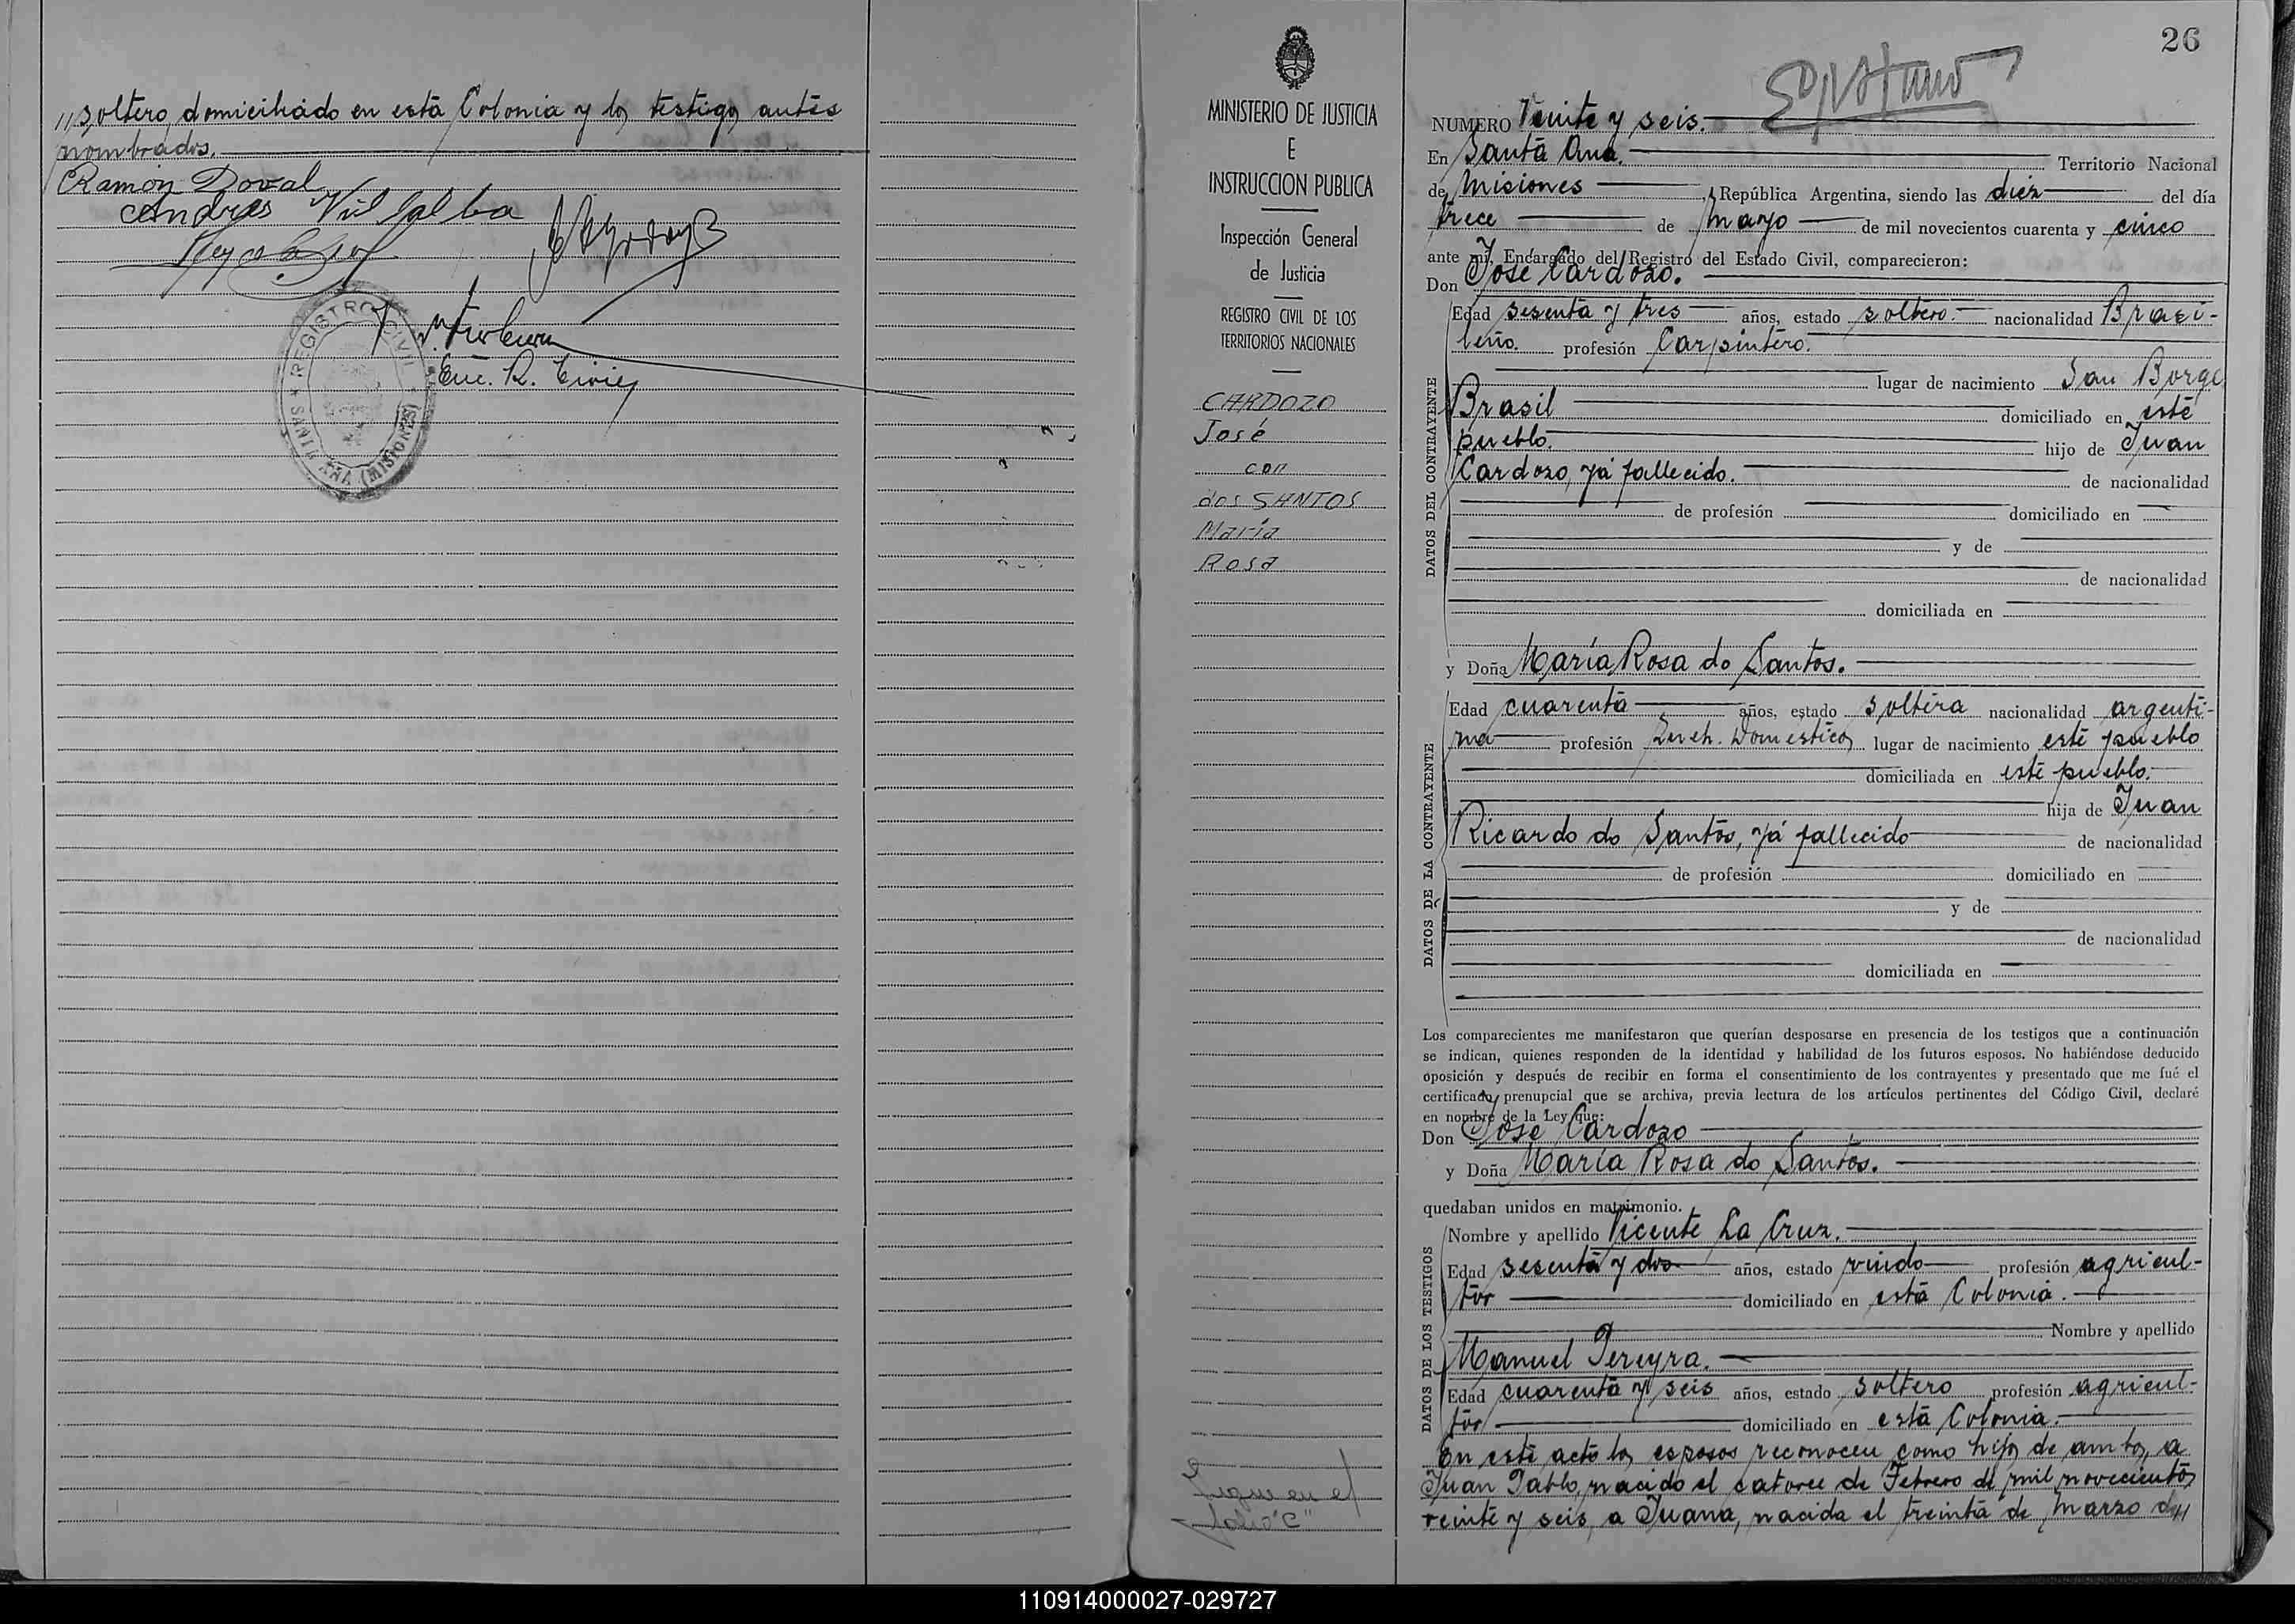 "soltero, domiciliado en está Colonia y los testigos antes
nombrados.
Ramón Doval
Andres Villalba
Enc. R. Civil
REGISTRO CIVIL
SANTA ANA (MISIONES)
MINISTERIO DE JUSTICIA
E
INSTRUCCION PUBLICA
Inspección General
de Justicia
REGISTRO CIVIL DE LOS
TERRITORIOS NACIONALES
CARDOZO
José
con
dos SANTOS
María
Rosa
Sigue en el
folio "C"
26
NUMERO Veinte y seis.
En Santa Ana. Territorio Nacional
de Misiones, República Argentina, siendo las diez del día
trece de mayo de mil novecientos cuarenta y cinco
ante mí, Encargado del Registro del Estado Civil, comparecieron:
Don José Cardozo.
DATOS DEL CONTRAYENTE
Edad sesenta y tres años, estado soltero. nacionalidad Brasi-
leño. profesión Carpintero.
lugar de nacimiento San Borge
Brasil domiciliado en este
pueblo. hijo de Juan
Cardozo, yá fallecido. de nacionalidad
de profesión domiciliado en
y de
de nacionalidad
domiciliada en
y Doña María Rosa do Santos.
DATOS DE LA CONTRAYENTE
Edad cuarenta años, estado soltera nacionalidad argenti-
na profesión Queh. Domésticos lugar de nacimiento este pueblo
domiciliada en este pueblo.
hija de Juan
Ricardo do Santos, yá fallecido de nacionalidad
de profesión domiciliado en
y de
de nacionalidad
domiciliada en
Los comparecientes me manifestaron que querían desposarse en presencia de los testigos que a continuación
se indican, quienes responden de la identidad y habilidad de los futuros esposos. No habiéndose deducido
oposición y después de recibir en forma el consentimiento de los contrayentes y presentado que me fué el
certificado prenupcial que se archiva, previa lectura de los artículos pertinentes del Código Civil, declaré
en nombre de la Ley que:
Don José Cardozo
y Doña María Rosa do Santos.
quedaban unidos en matrimonio.
DATOS DE LOS TESTIGOS
Nombre y apellido Vicente La Cruz.
Edad sesenta y dos años, estado viudo profesión agricul-
tor domiciliado en está Colonia.
Nombre y apellido
Manuel Pereyra.
Edad cuarenta y seis años, estado soltero profesión agricul-
tor domiciliado en está Colonia.
En este acto los esposos reconocen como hijos de ambos, a
Juan Pablo, nacido el catorce de Febrero de mil novecientos
veinte y seis, a Juana, nacida el treinta de marzo de"
110914000027-029727